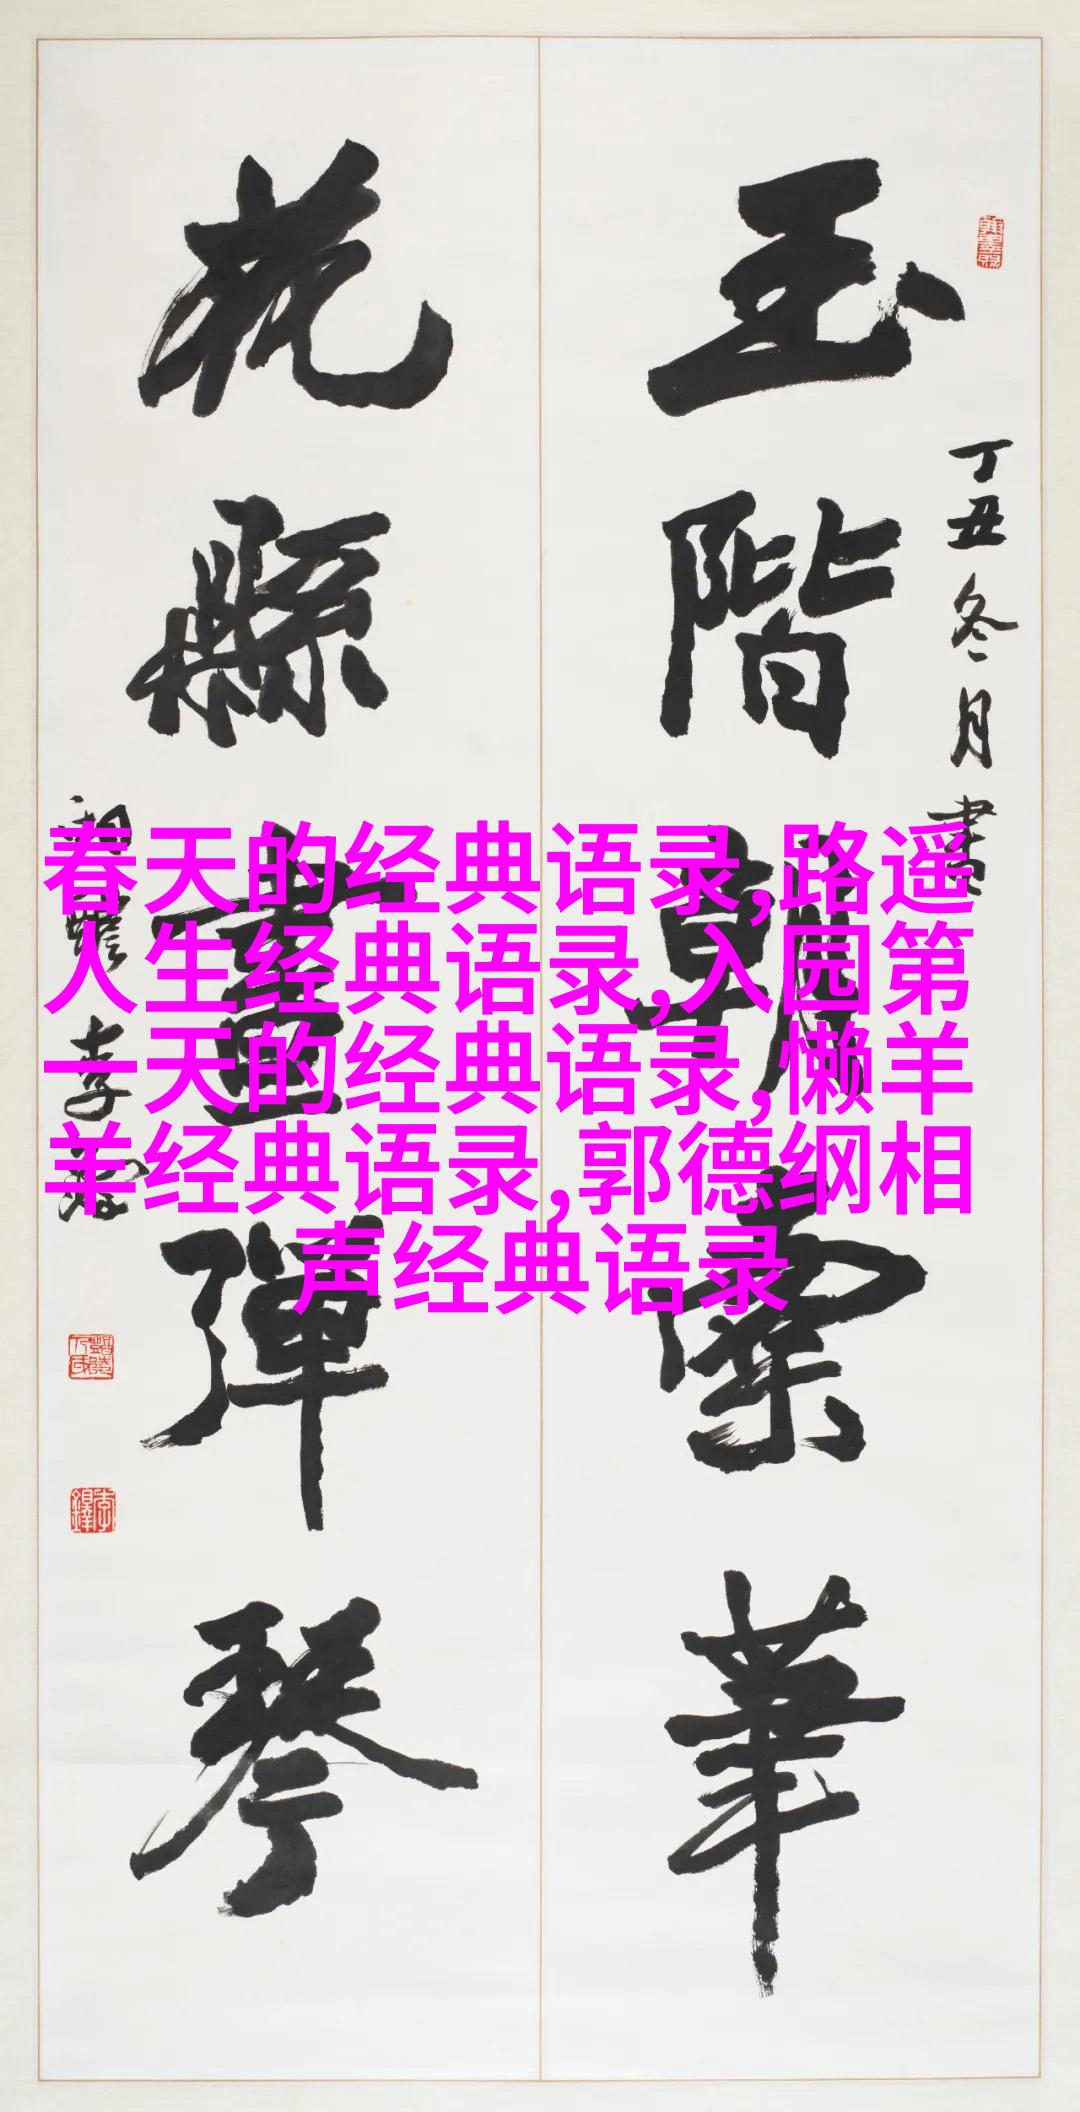 丁丑冬月書
玉階朝華
花縣彈琴
李鐸
李鐸
春天的经典语录,路遥
人生经典语录,入园第
一天的经典语录,懒羊
羊经典语录,郭德纲相
声经典语录